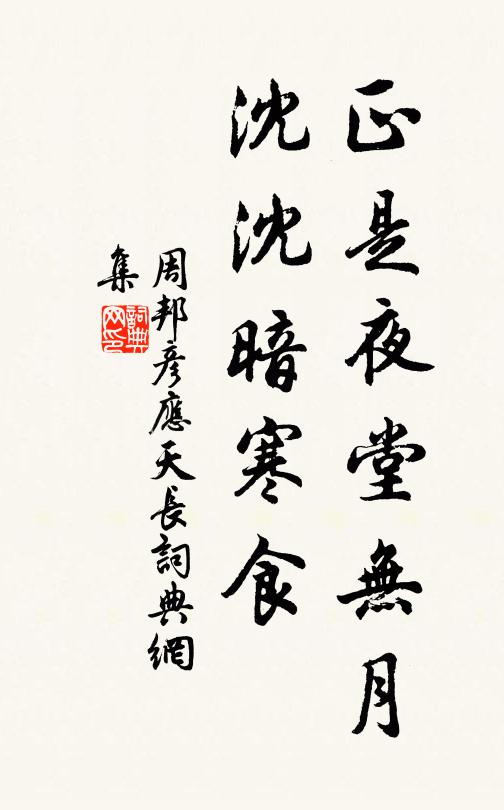 正是夜堂無月
沈沈暗寒食
周邦彦應天長詞典網
集
詞典
网印